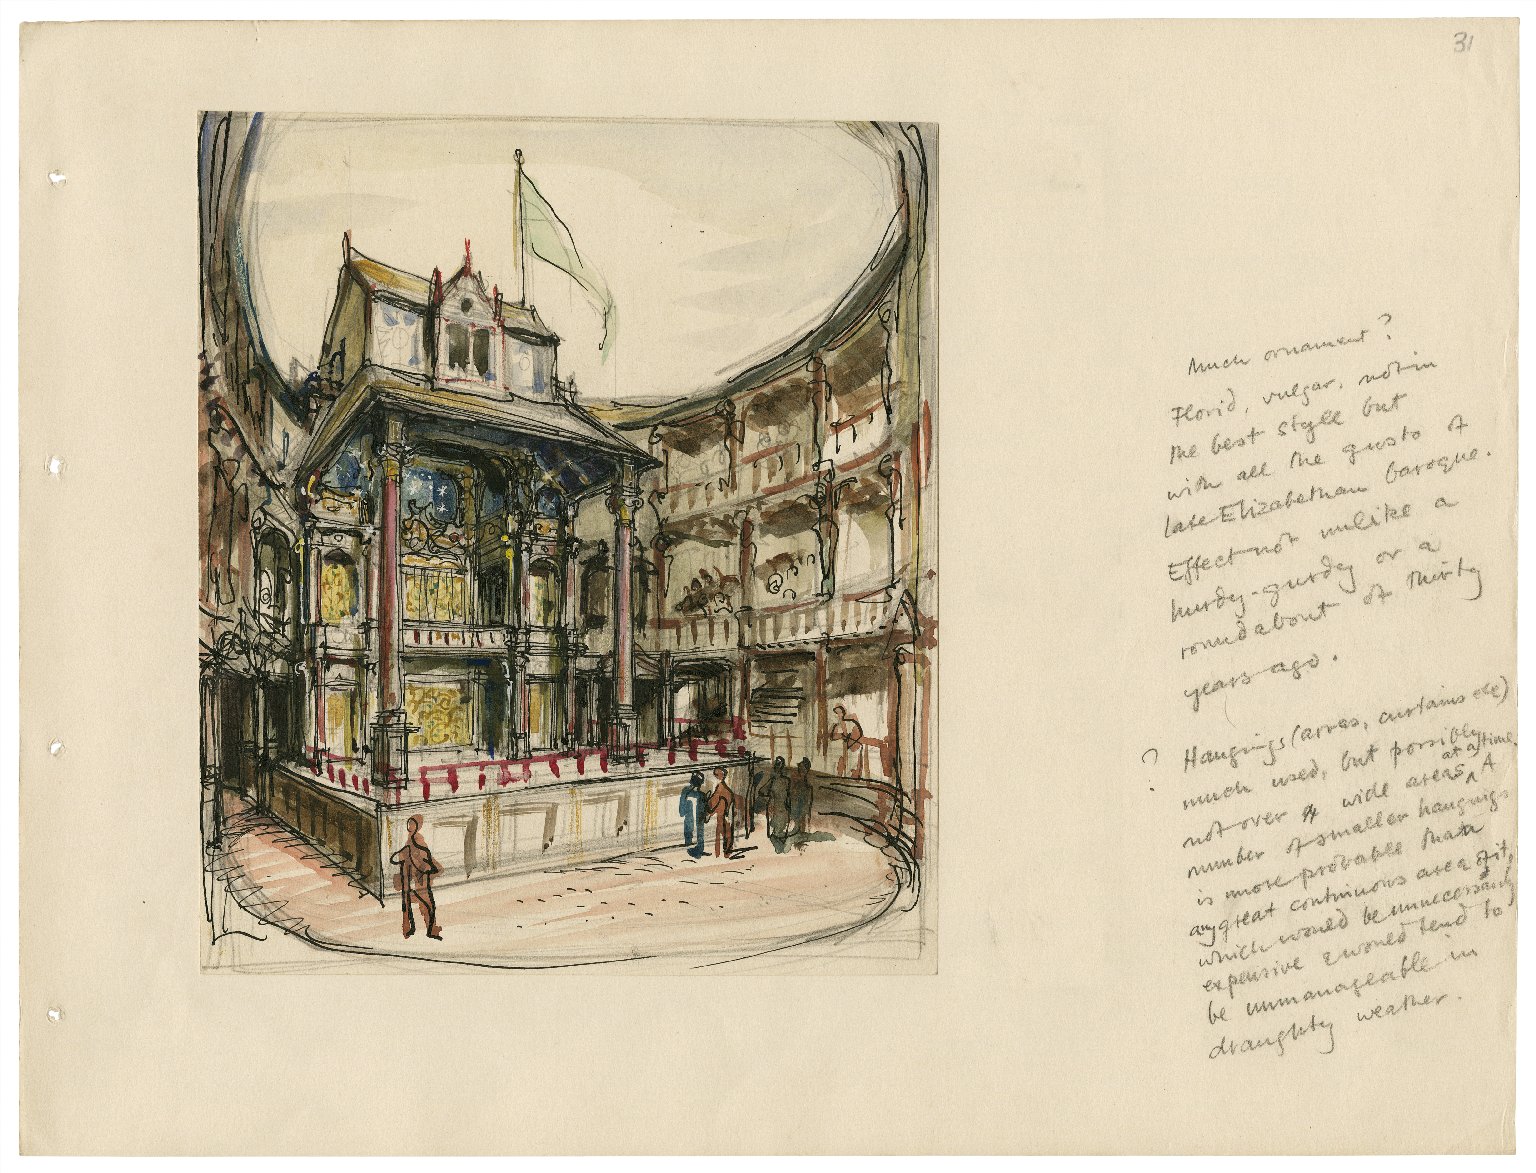 31
Much ornament?
Florid, vulgar, not in
the best style but
with all the gusto of
late Elizabethan baroque.
Effect not unlike a
hurdy-gurdey or a
roundabout of thirty
years ago.
? Hangings (arras, curtains etc)
much used, but possibly
not over wide areas at a time. A
number of smaller hangings
is more probable than
any great continuous area of it,
which would be unnecessarily
expensive & would tend to
be unmanageable in
draughty weather.